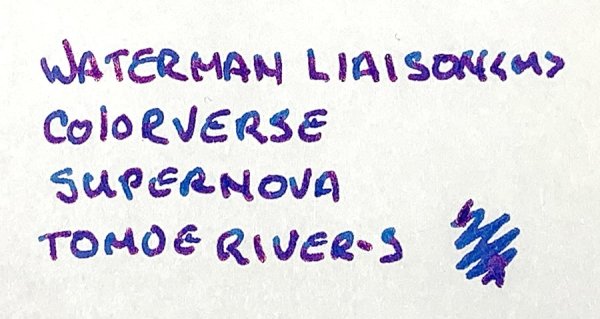 WATERMAN LIAISON<M>
COlORVERSE
SUPERNOVA
TOMOE RIVER-S